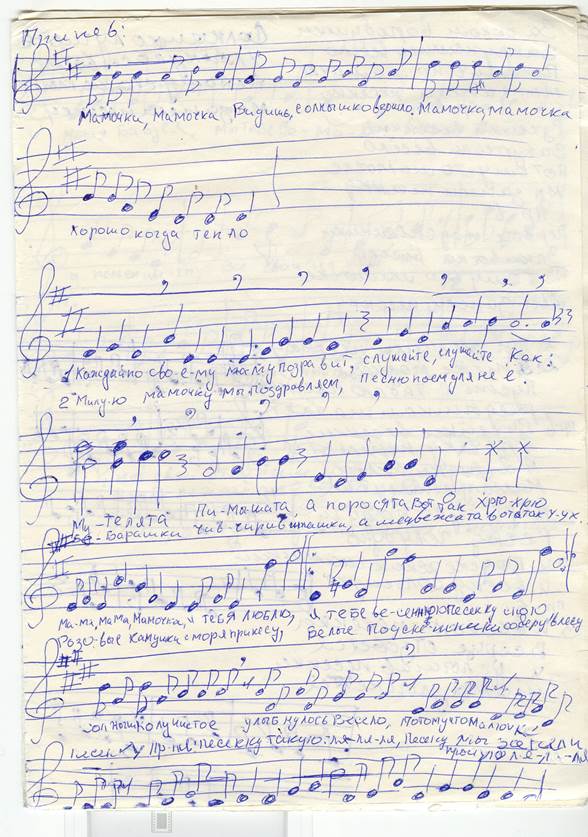 Припев:
Мамочка, Мамочка Видишь, солнышко взошло. Мамочка, мамочка
хорошо когда тепло
1 Каждый по сво-е-му маму поздравит, слушайте, слушайте как:
2 Милу-ю мамочку мы поздравляем, Песню поем для не ё.
Му- телята Пи-мышата, а поросята вот так хрю-хрю
Бе-Барашки Чив-чирив пташки, а медвежата вот так у-ух
Ма-ма, мама, Мамочка, я тебя люблю, Я тебе ве-сеннюю песенку спою
Розо-вые камушки с моря принесу, Белые соберу в лесу
Солнышко лучистое улыбнулось весело, потому что мамочке
песенку такую: ля-ля-ля, Песенку мы